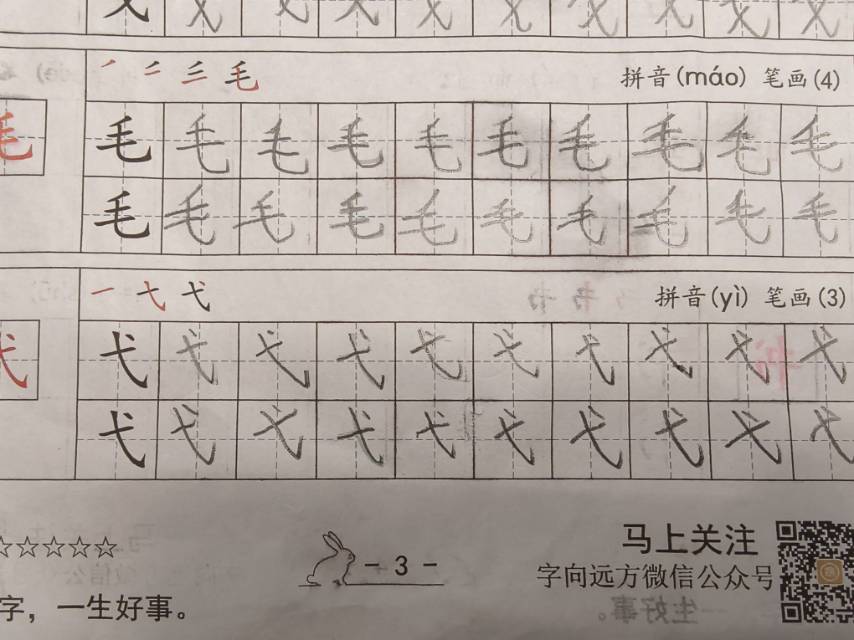 拼音(máo) 笔画(4)
毛 毛 毛 毛 毛 毛 毛 毛 毛 毛 毛
毛 毛 毛 毛 毛 毛 毛 毛 毛 毛
一 弋 弋
拼音(yì) 笔画(3)
弋 弋 弋 弋 弋 弋 弋 弋 弋 弋 弋
弋 弋 弋 弋 弋 弋 弋 弋 弋 弋
☆☆☆☆☆
- 3 -
马上关注
字向远方微信公众号
字，一生好事。